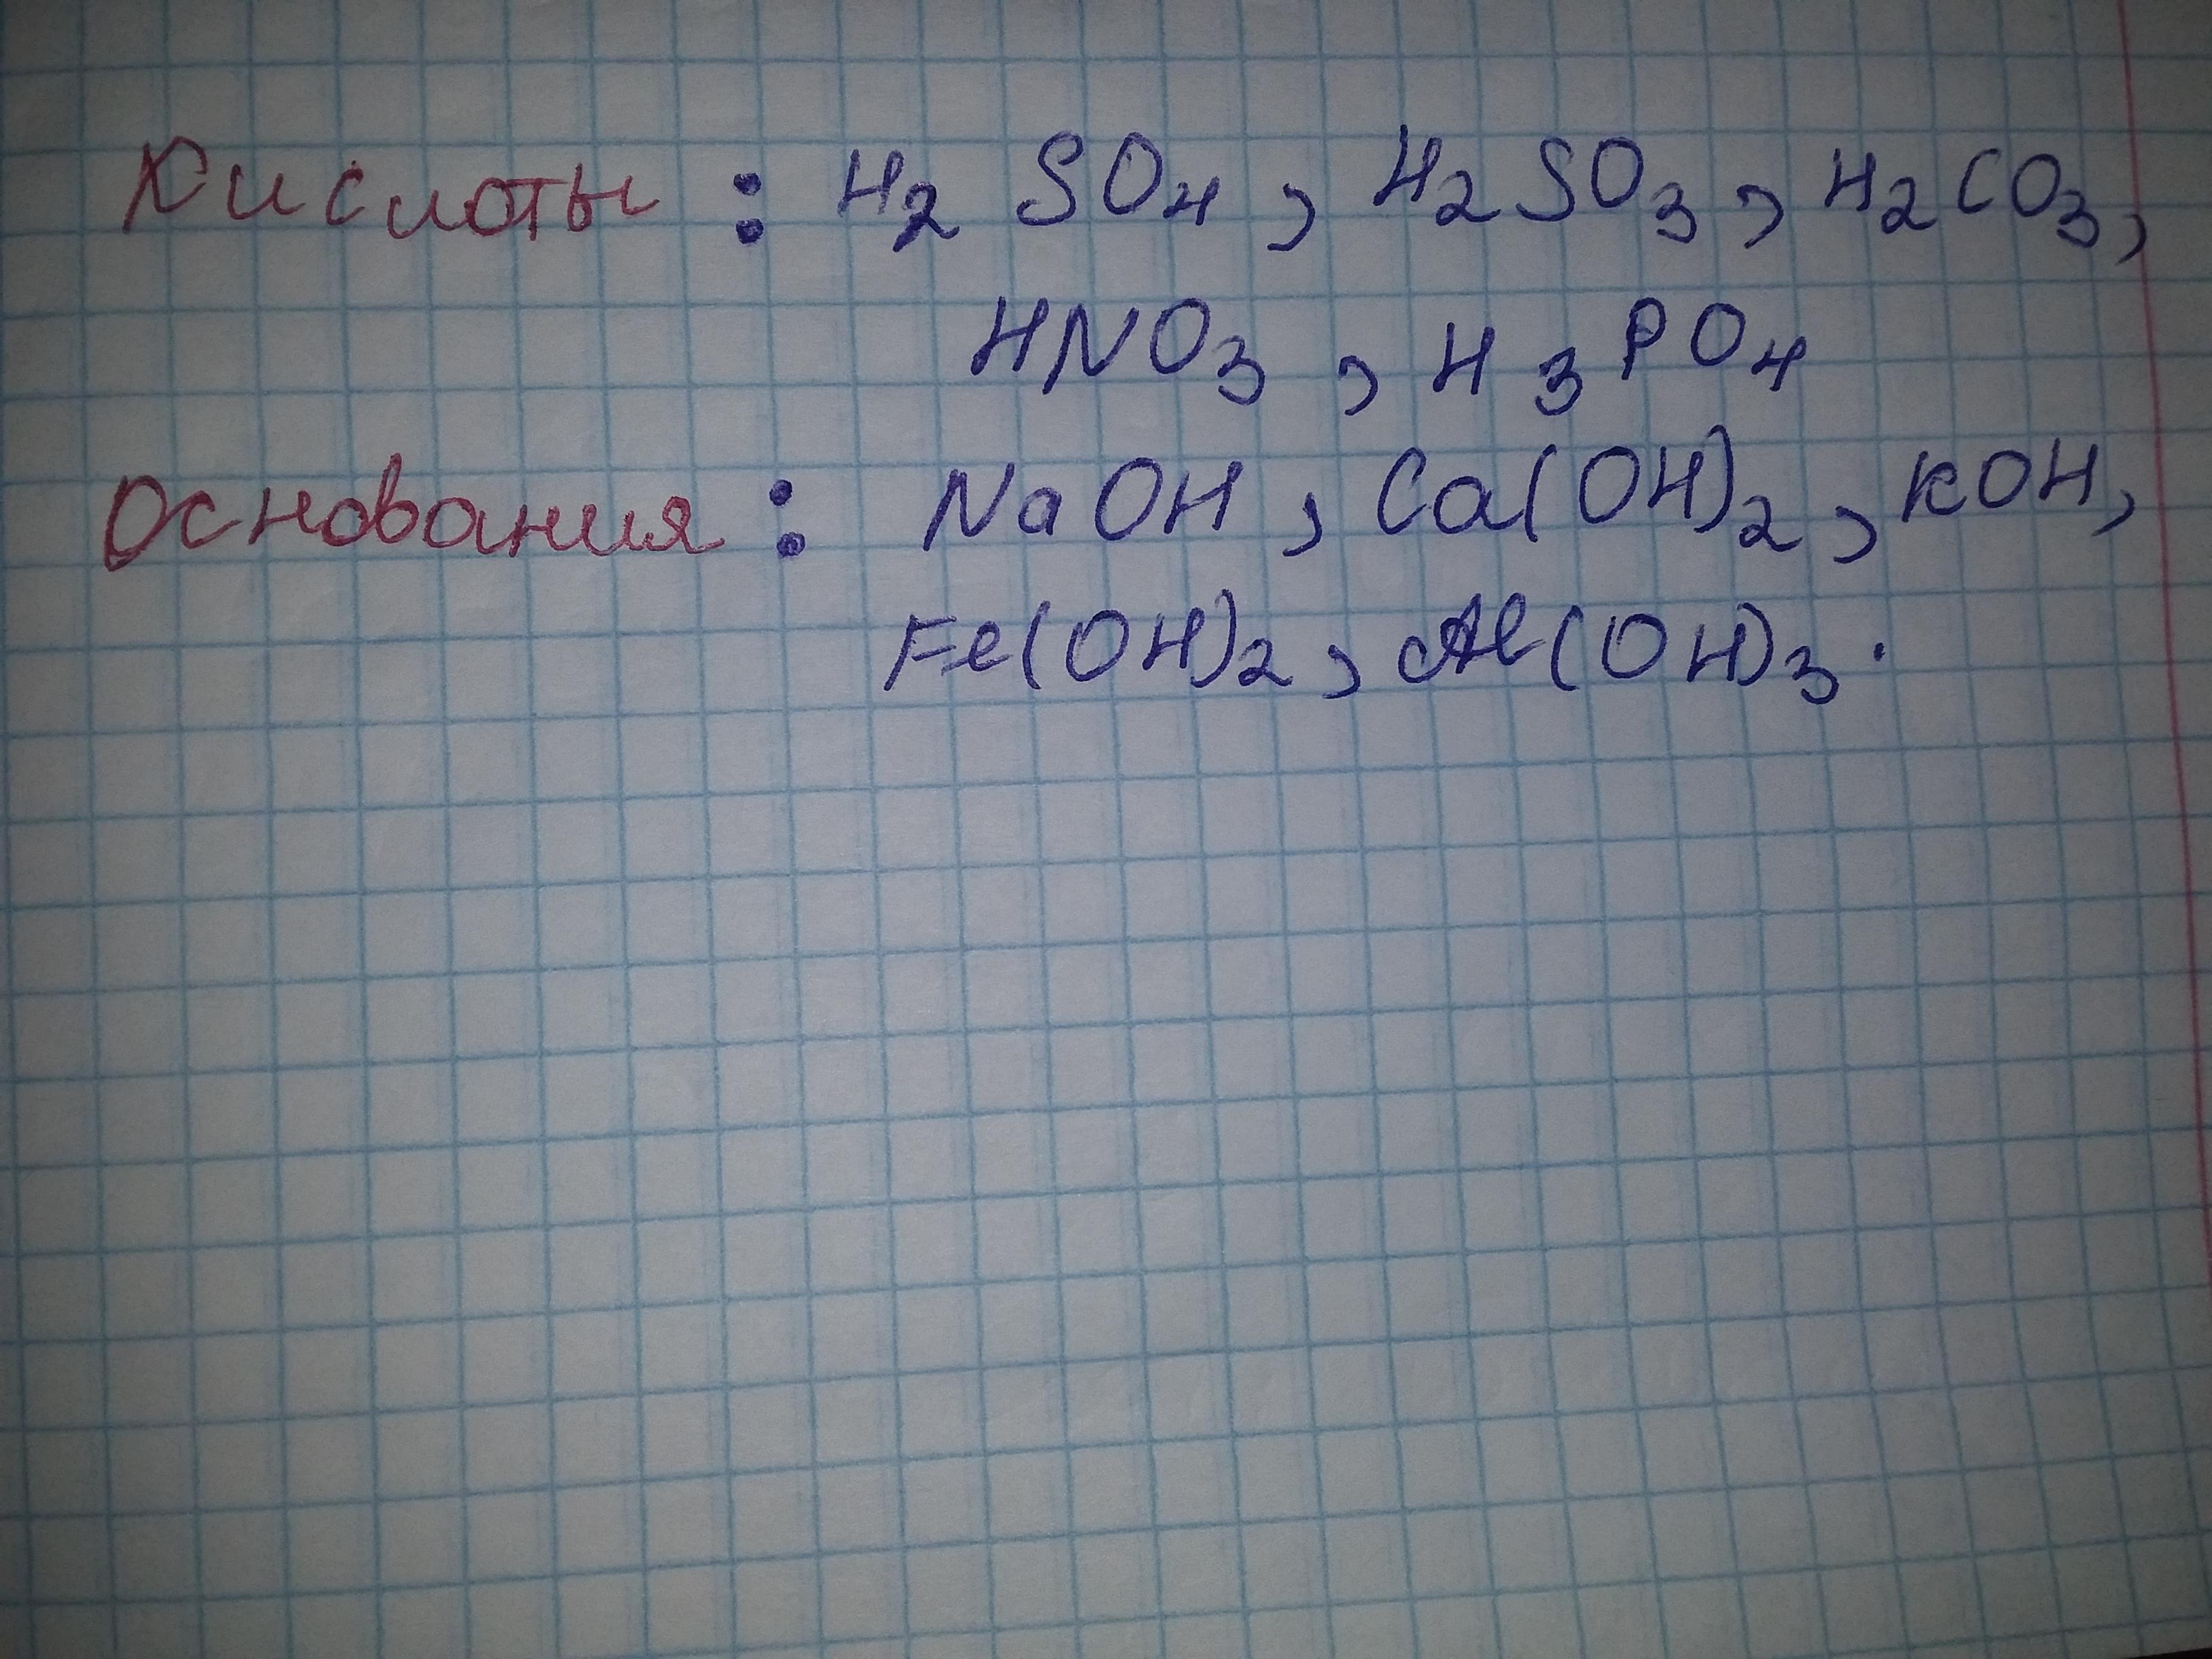 Кислоты : H₂ SO₄ , H₂SO₃ , H₂CO₃,
HNO₃ , H₃PO₄
Основания : NaOH , Ca(OH)₂ , KOH,
Fe(OH)₂ , Al(OH)₃ .